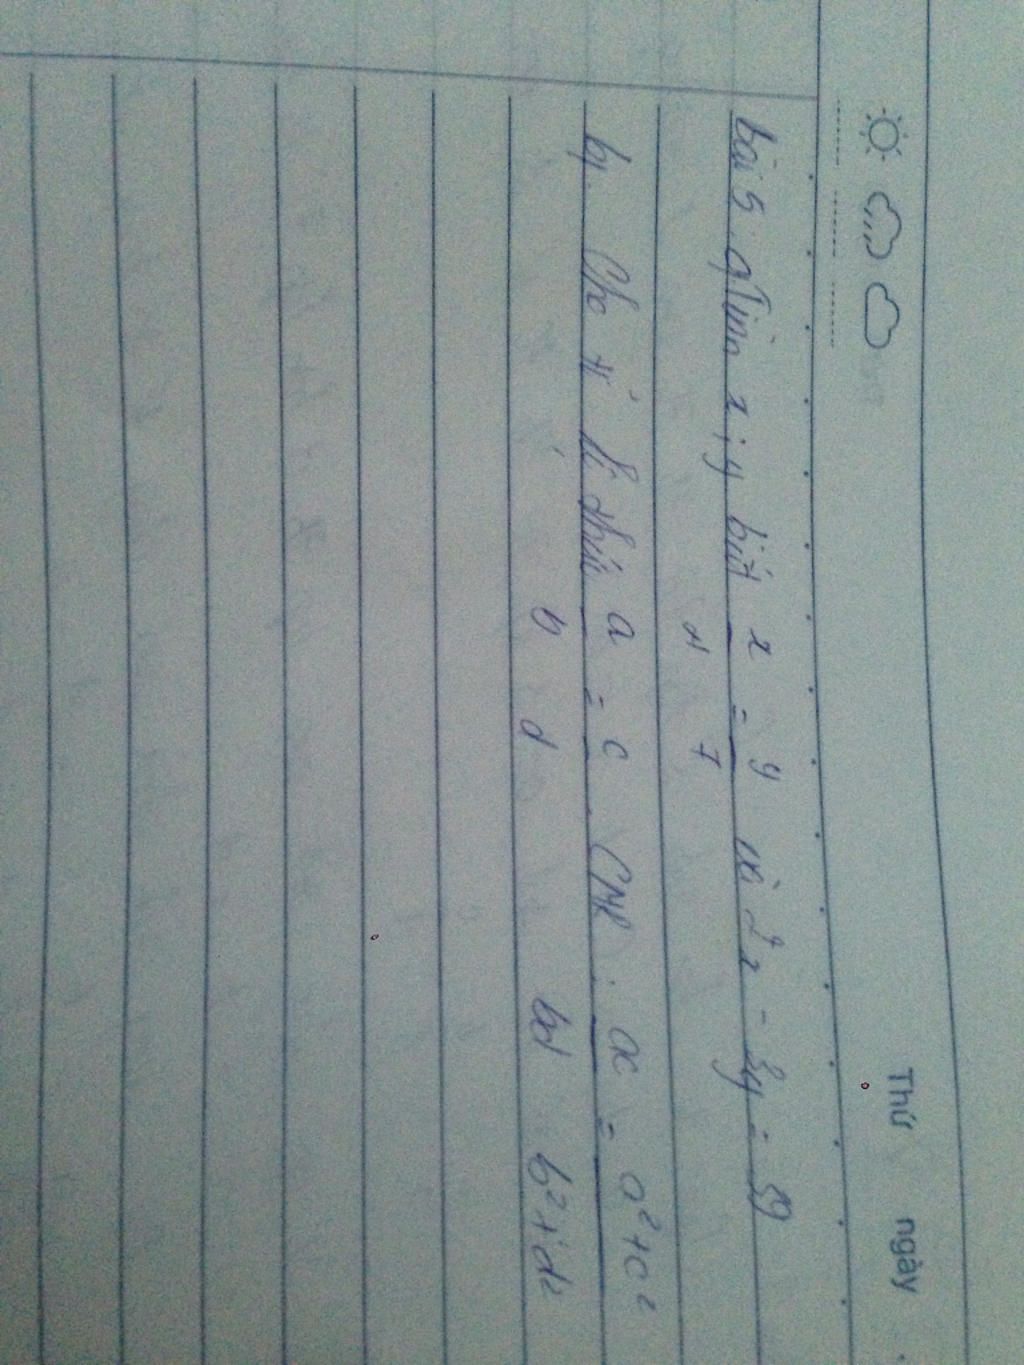 Thứ ngày
bài 5. a, Tìm x; y biết x/4 = y/7 và 2x - 3y = 39
b, Cho tỉ lệ thức a/b = c/d. CMR: ac/bd = a²+c²/b²+d²